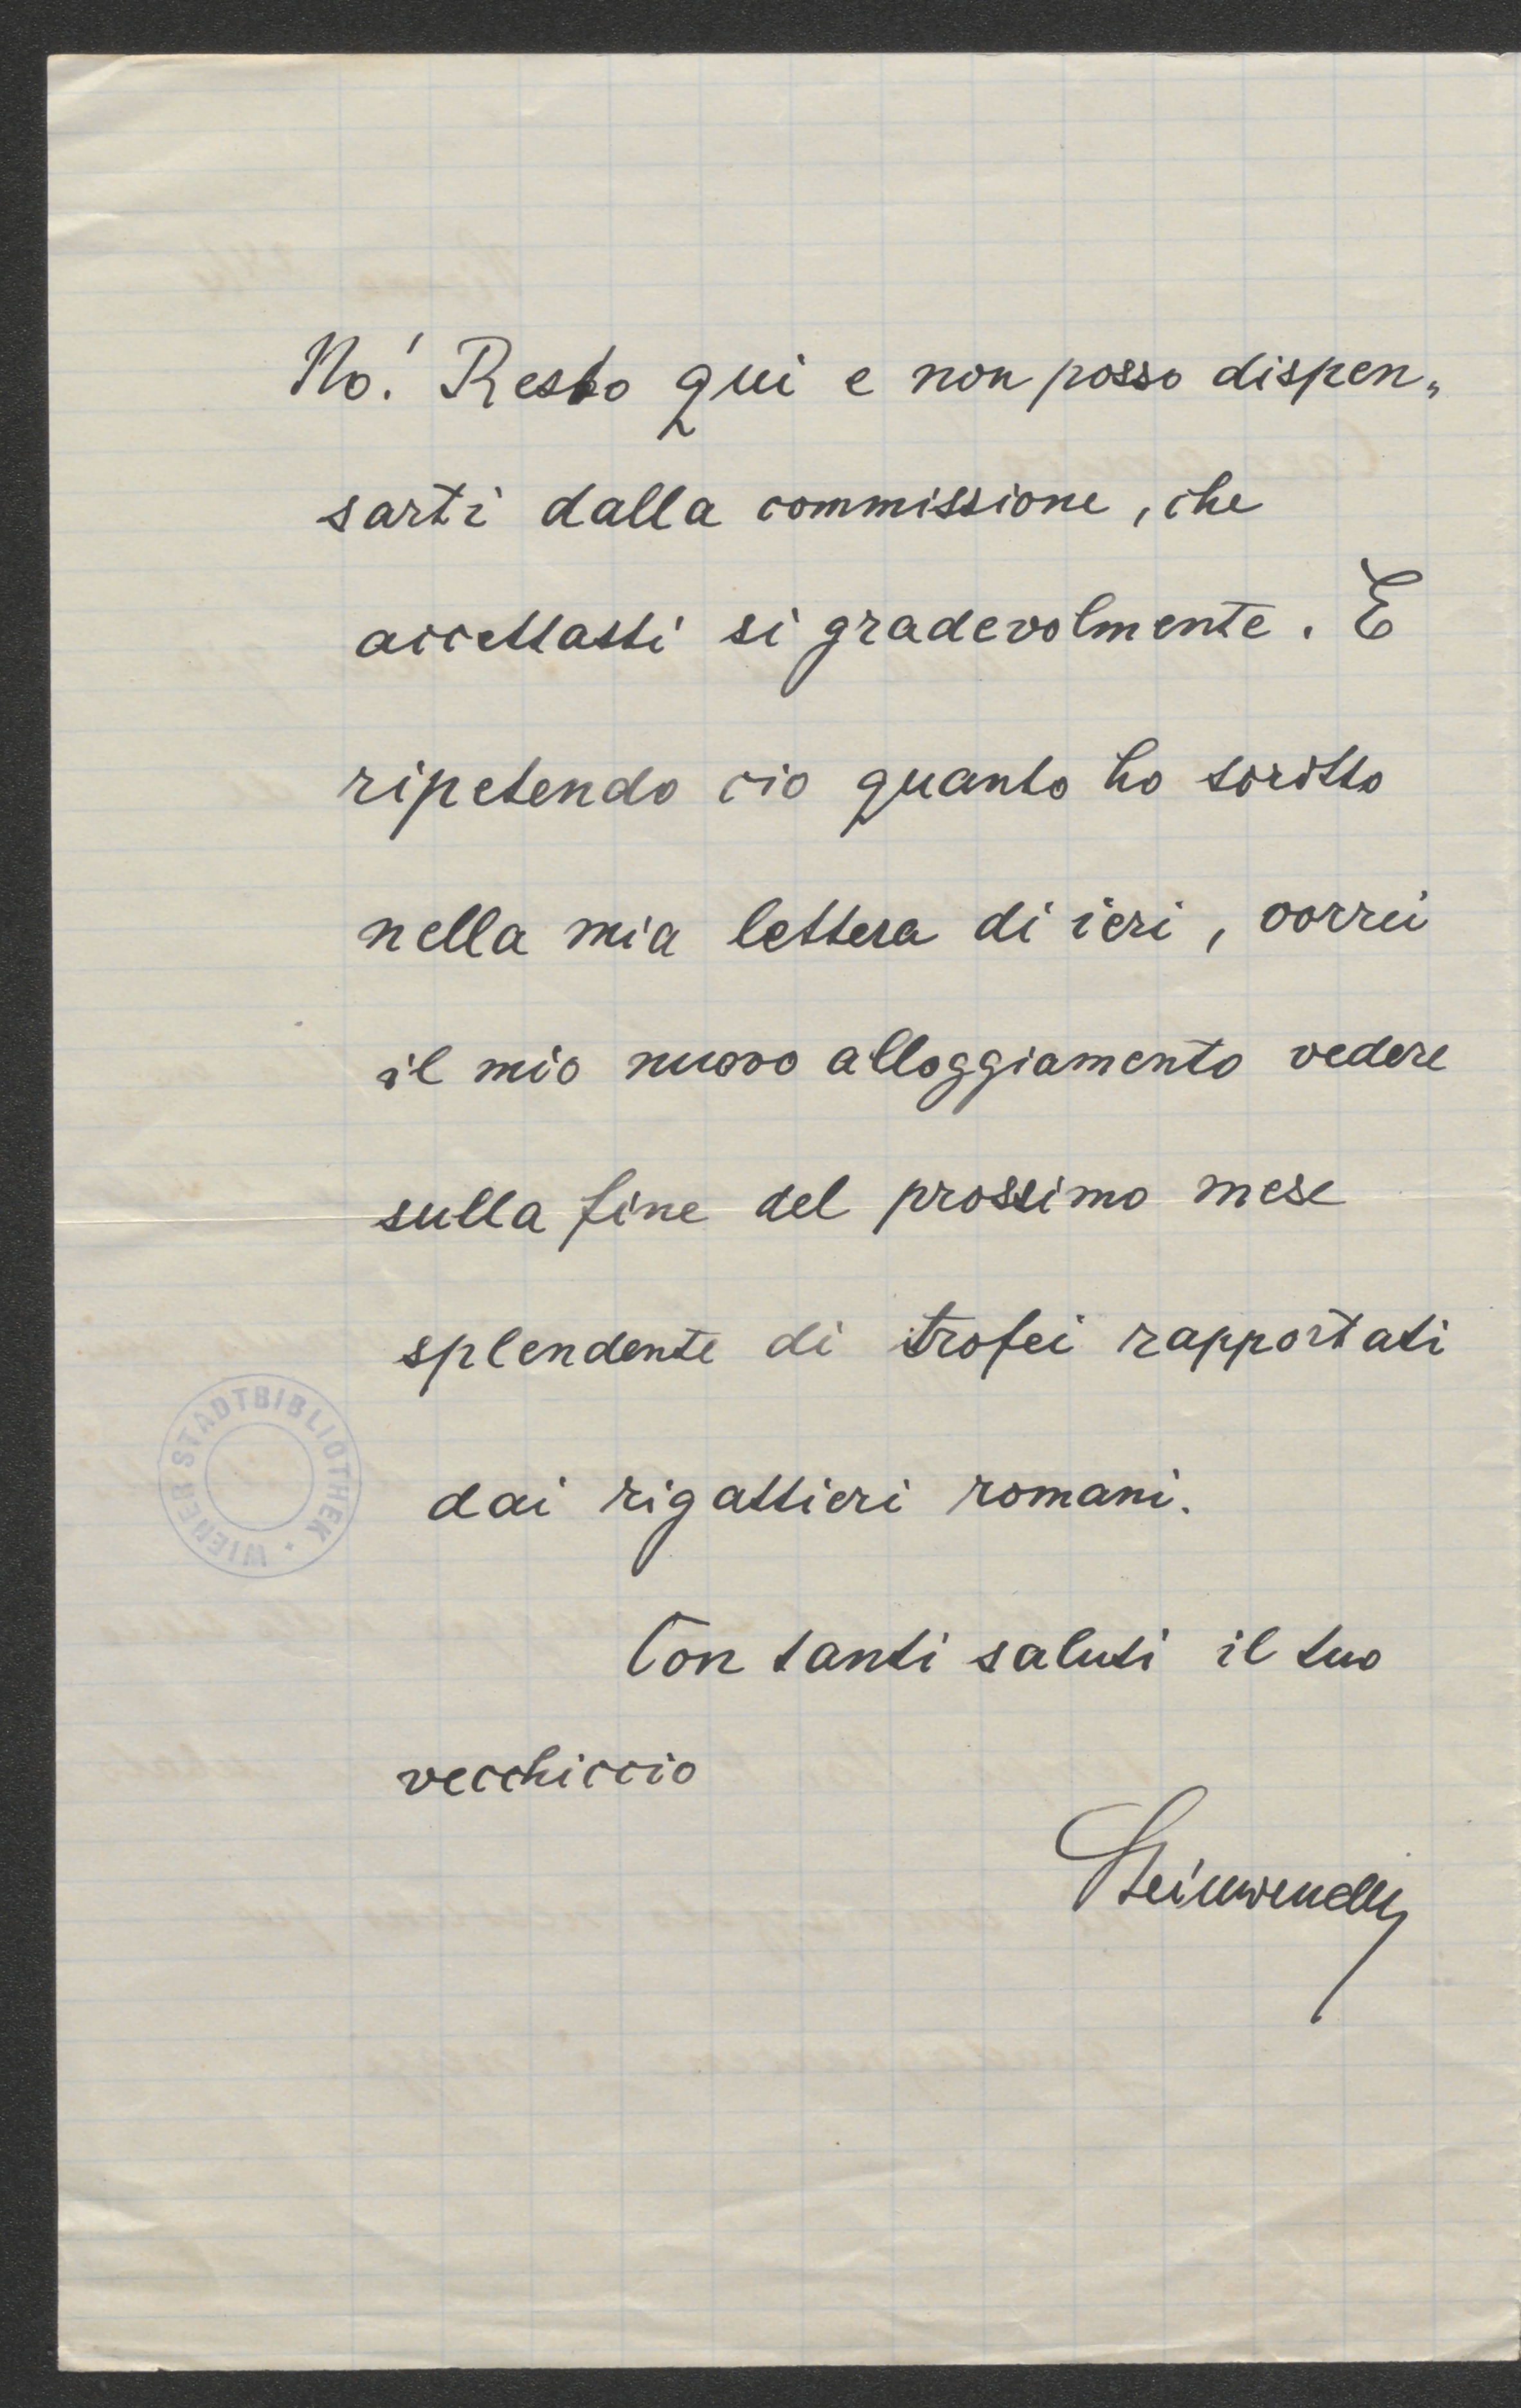 No! Resto qui e non posso dispen„
sarti dalla commissione, che
accettasti si gradevolmente. E
ripetendo cio quanto ho scritto
nella mia lettera di ieri, vorrei
il mio nuovo alloggiamento vedere
sulla fine del prossimo mese
splendente di trofei rapportati
dai rigattieri romani.
Con tanti saluti il tuo
vecchiccio
WIENER STADTBIBLIOTHEK